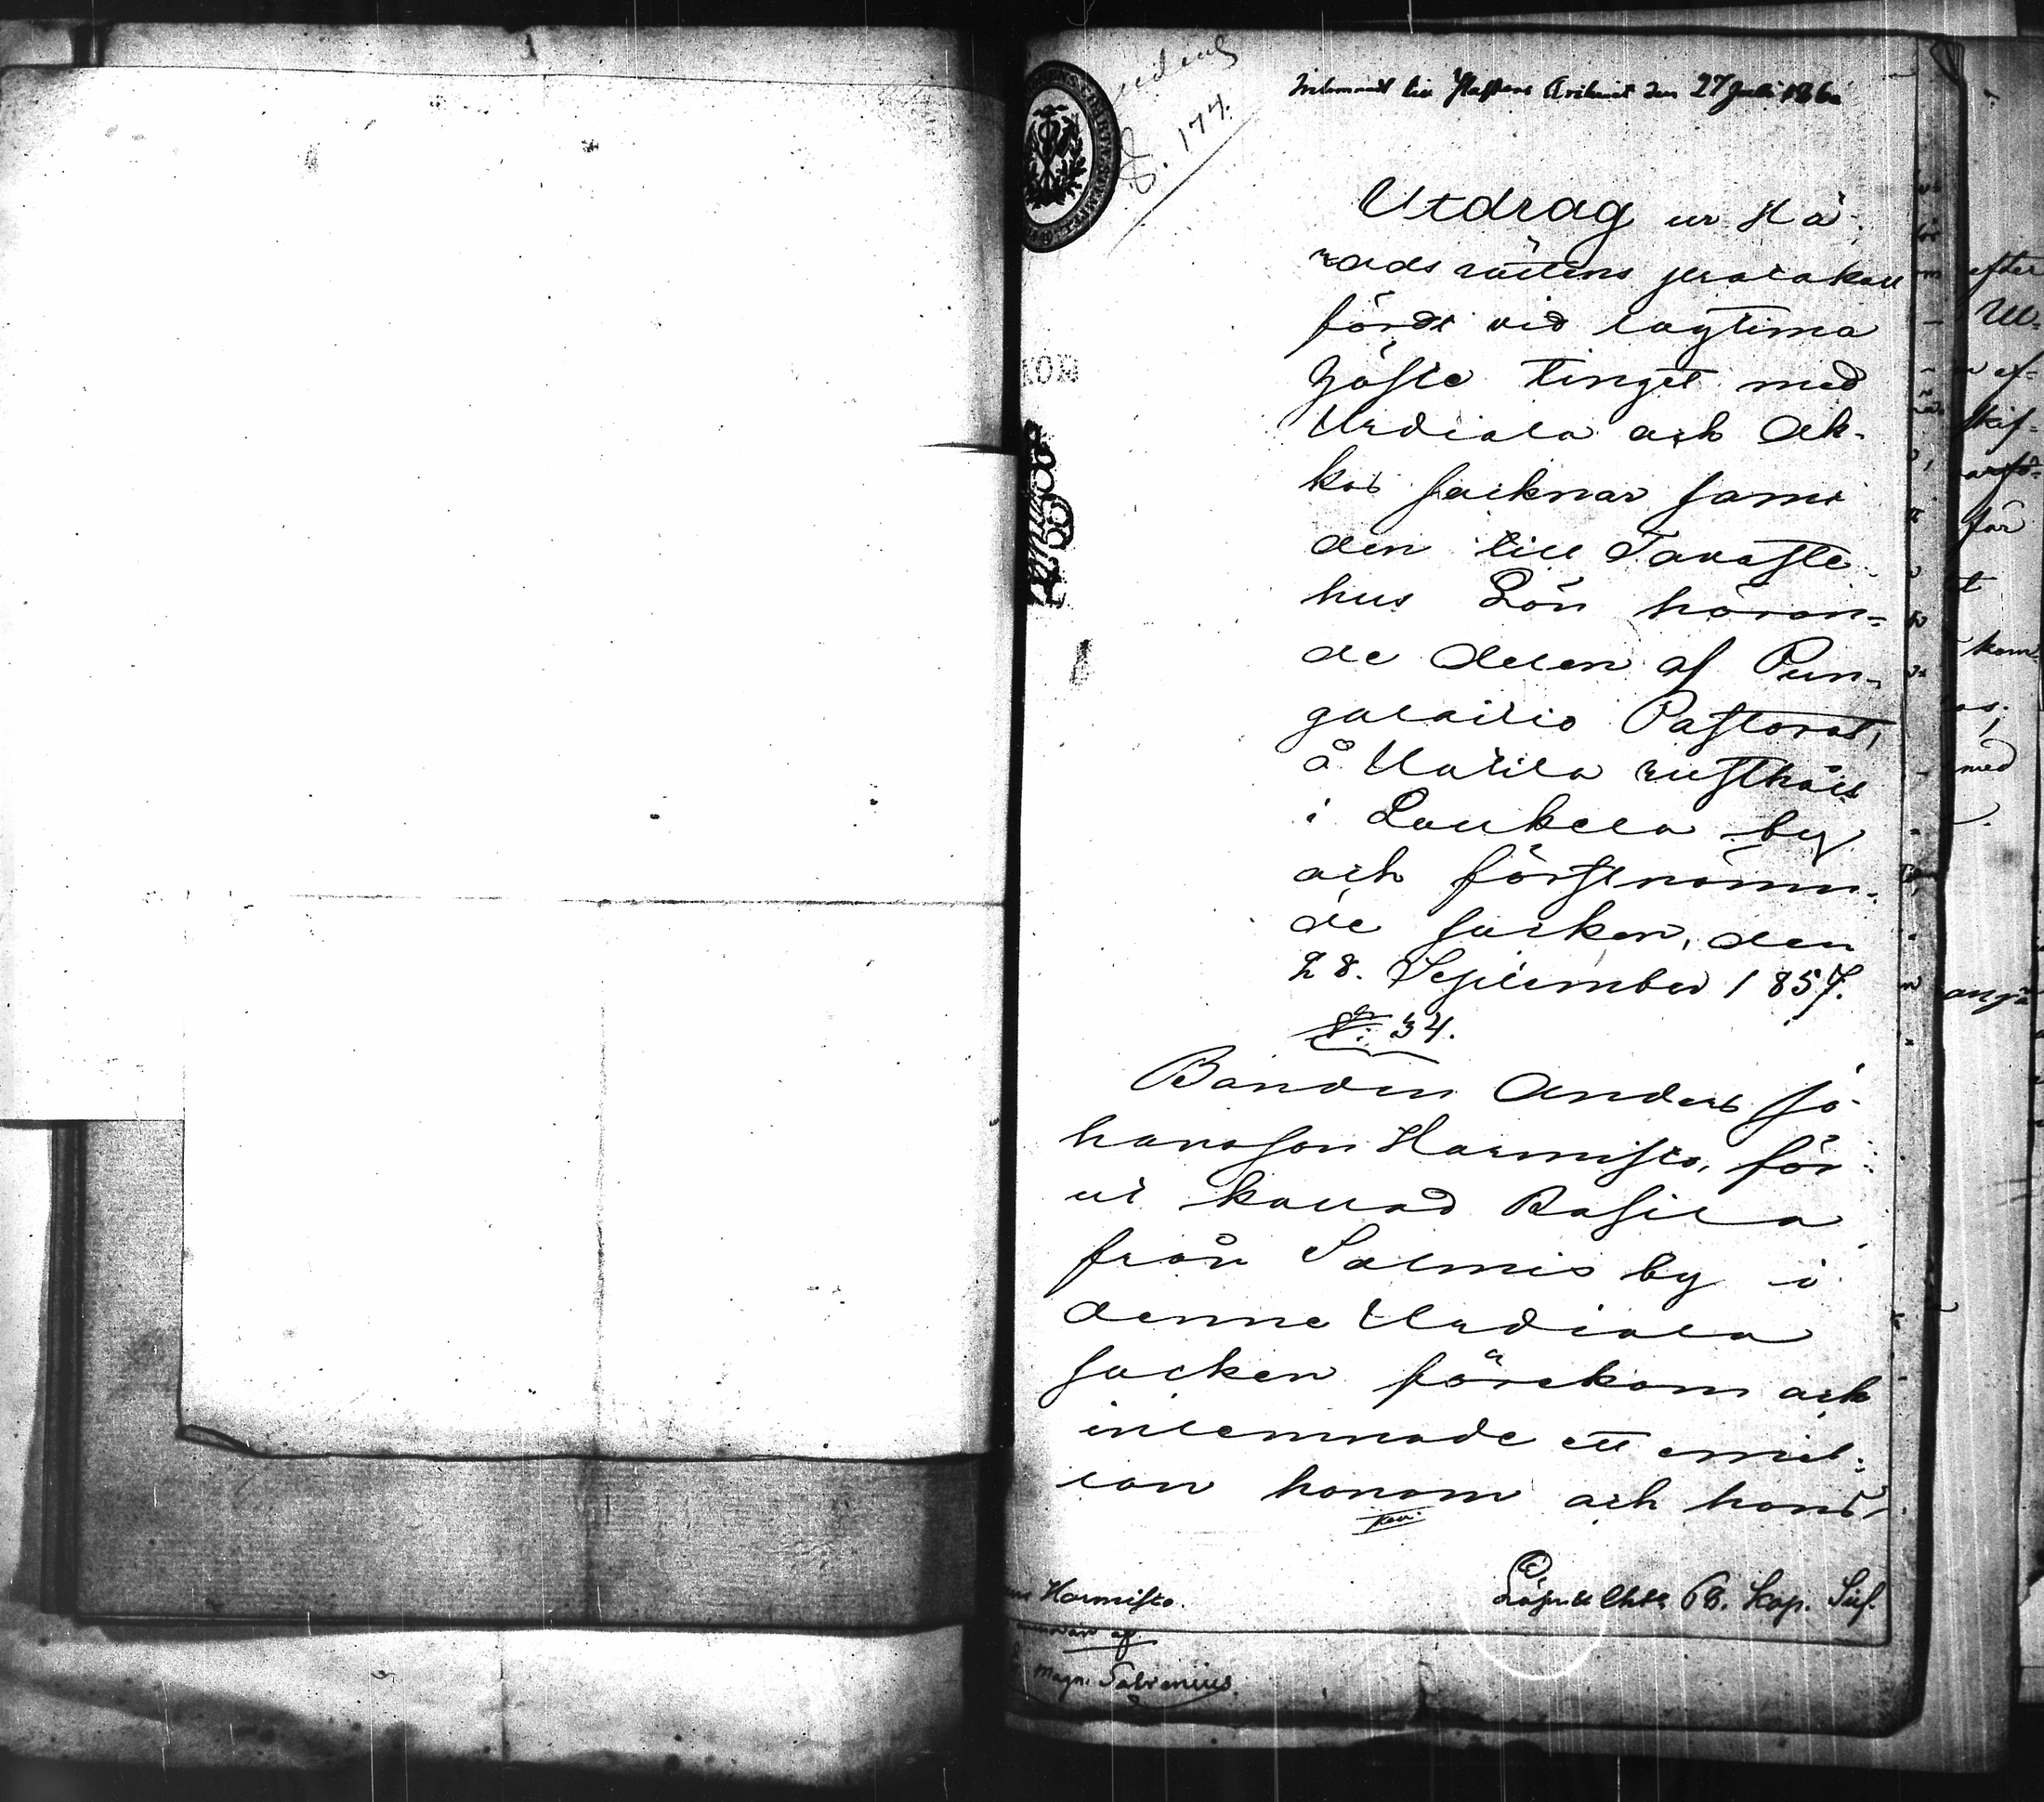 Inlemnadt till Rättens Archivet den 27 Juli 186
8. 174.
Utdrag ur Hä-
rads rättens protokoll
fördt vid lagtima
Höste tinget med
Urdiala och Ak-
kas socknar samt
den till Tavaste-
hus Län höran-
de delen af Pun-
galaitio Pastorat,
å Uotila rusthåll
i Laukela by
och förstnämn-
de socken, den
28. September 1857.
§. 34.
Bonden Anders Jo-
hansson Harmisto, för-
ut kallad Rasila
från Salmis by i
denne Urdiala
socken förekom och
inlemnade ett emel-
lan honom och hans
Harmisto.
af
Magn. Salvenius